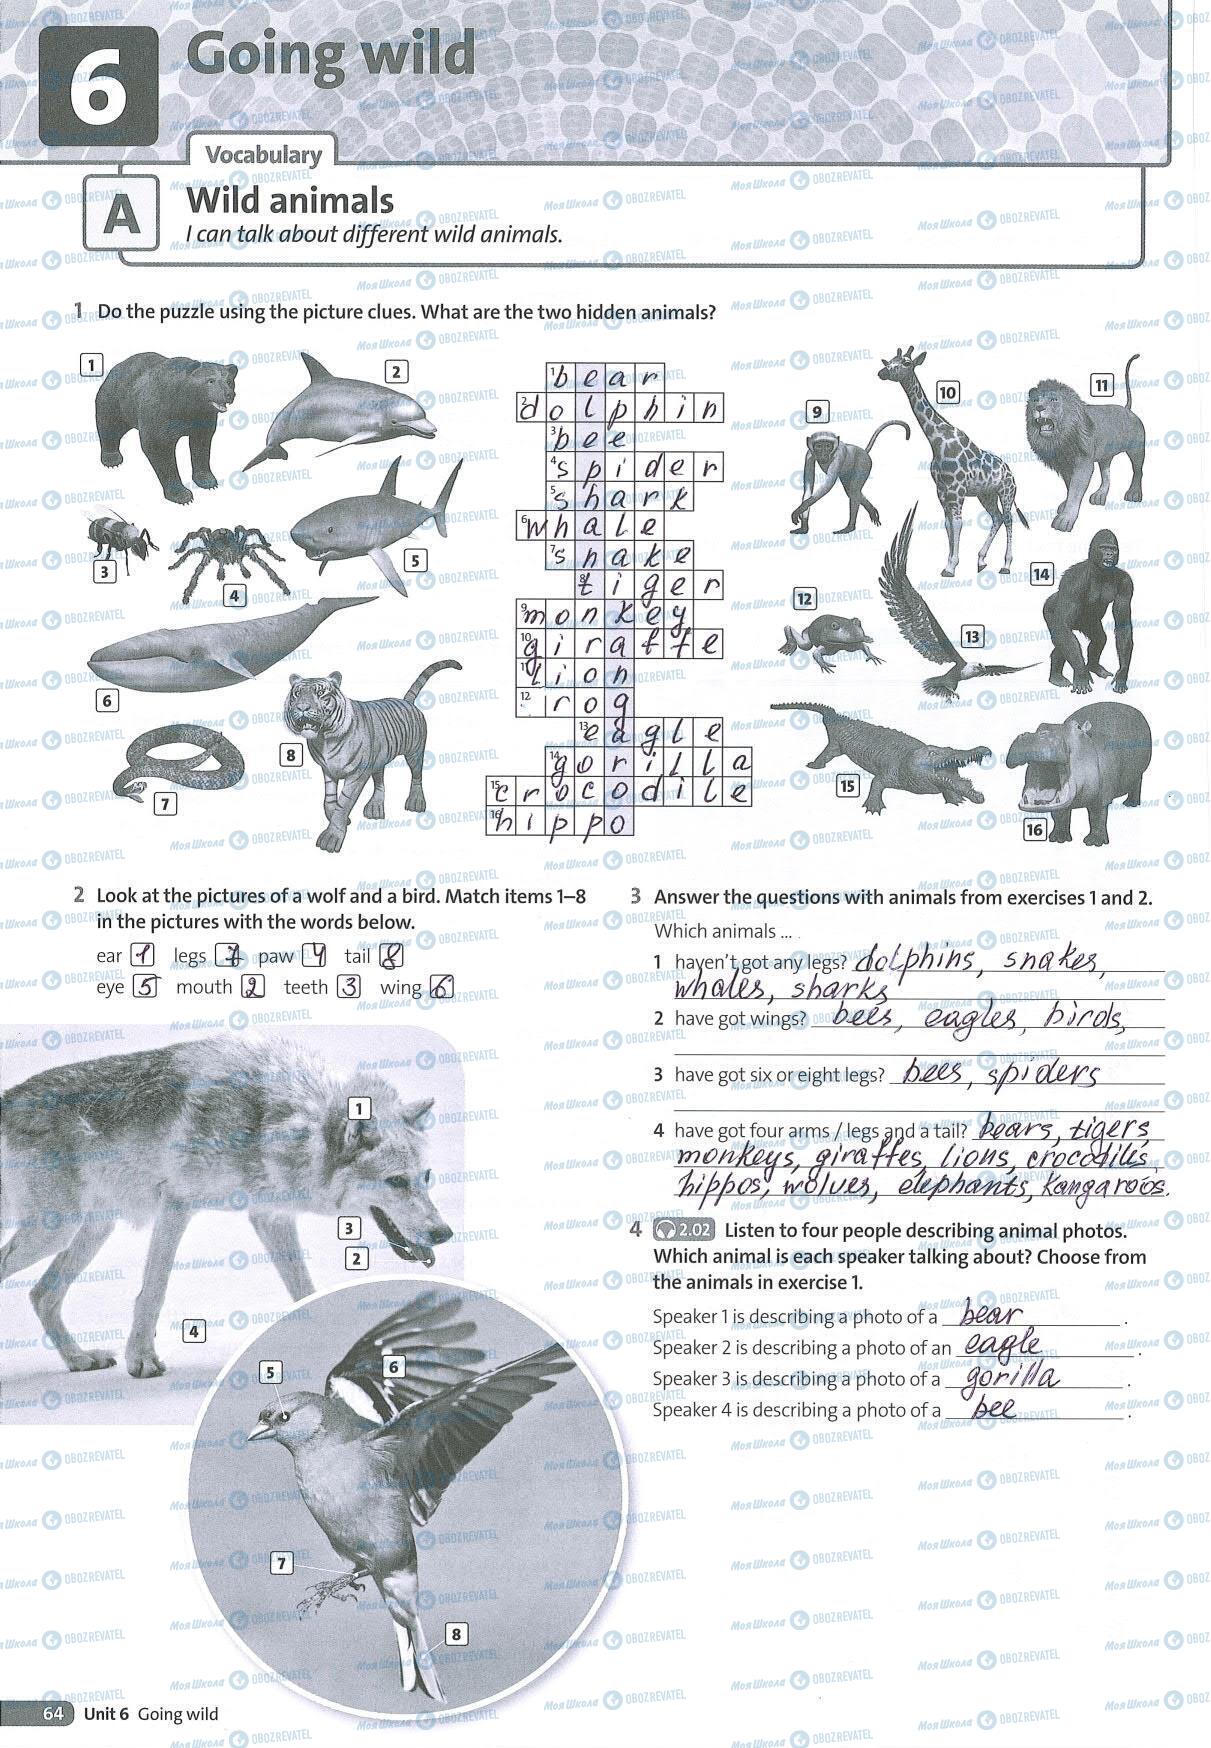 6
Going wild
Vocabulary
A
Wild animals
I can talk about different wild animals.
1 Do the puzzle using the picture clues. What are the two hidden animals?
1 bear
2 dolphin
3 bee
4 spider
5 shark
6 whale
7 snake
8 tiger
9 monkey
10 giraffe
11 lion
12 rog
13 eagle
14 gorilla
15 crocodile
16 hippo
1
2
3
4
5
6
7
8
9
10
11
12
13
14
15
16
2 Look at the pictures of a wolf and a bird. Match items 1–8
in the pictures with the words below.
ear 1 legs 7 paw 4 tail 8
eye 5 mouth 2 teeth 3 wing 6
1
3
2
4
5
6
7
8
3 Answer the questions with animals from exercises 1 and 2.
Which animals ...
1 haven't got any legs? dolphins, snakes,
whales, sharks
2 have got wings? bees, eagles, birds,
3 have got six or eight legs? bees, spiders
4 have got four arms / legs and a tail? bears, tigers,
monkeys, giraffes, lions, crocodiles,
hippos, wolves, elephants, kangaroos.
4 2.02 Listen to four people describing animal photos.
Which animal is each speaker talking about? Choose from
the animals in exercise 1.
Speaker 1 is describing a photo of a bear.
Speaker 2 is describing a photo of an eagle.
Speaker 3 is describing a photo of a gorilla.
Speaker 4 is describing a photo of a bee.
64 Unit 6 Going wild
Моя Школа OBOZREVATEL